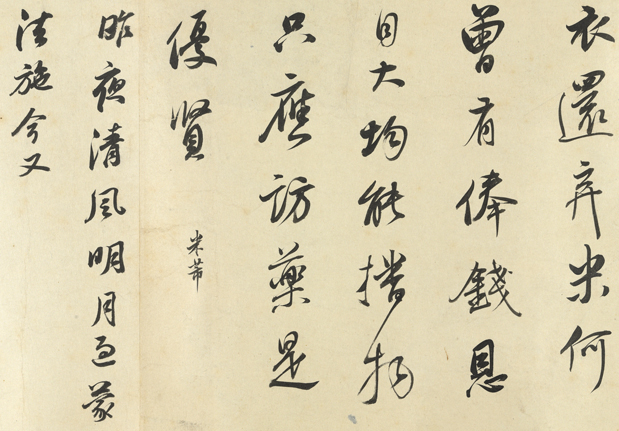 衣還弃米何
曾有俸錢恩
自大均能播物
只應訪藥是
優賢
米芾
昨夜清風明月過蒙
法施今又